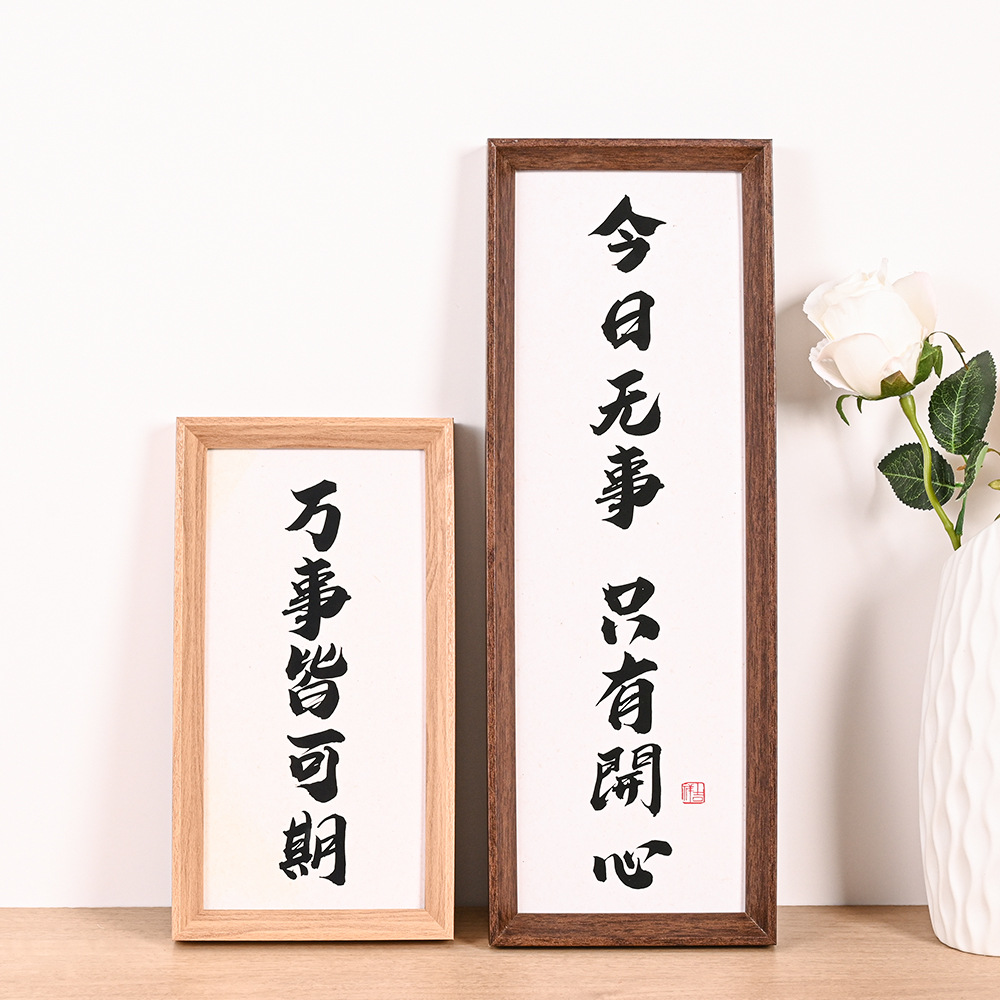 万事皆可期
今日无事 只有開心